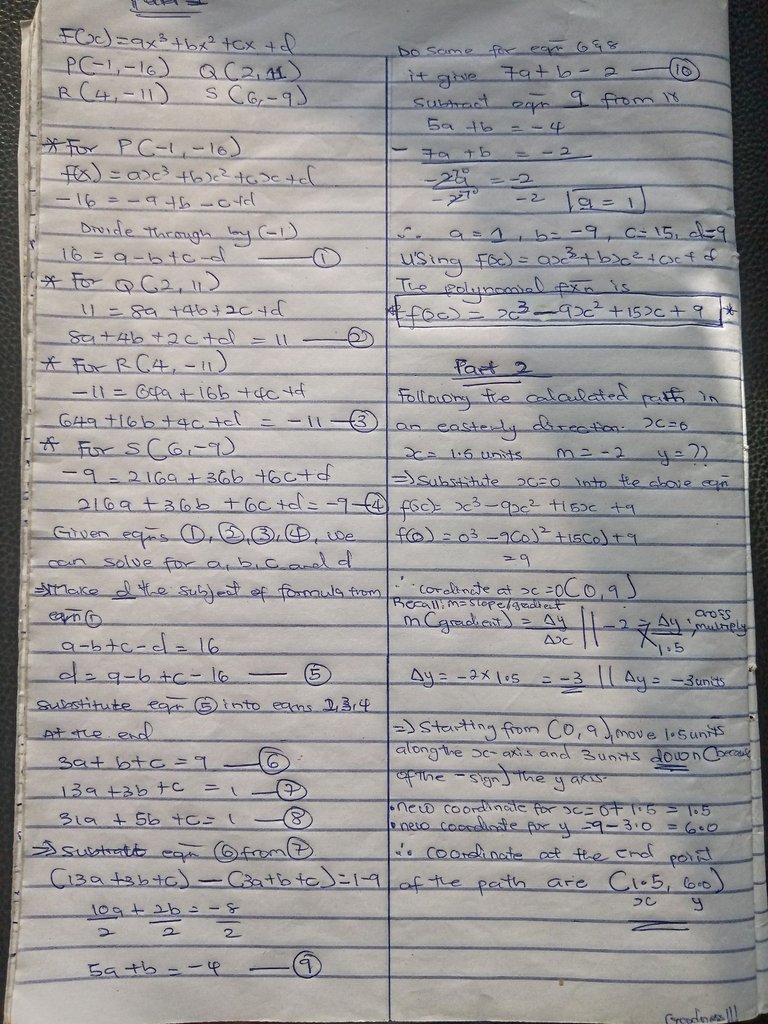 Part 1
F(x) = ax³ + bx² + cx + d
P(-1, -16) Q(2, 11)
R(4, -11) S(6, -9)
* For P(-1, -16)
f(x) = ax³ + bx² + cx + d
-16 = -a + b - c + d
Divide through by (-1)
16 = a - b + c - d —— ①
* For Q(2, 11)
11 = 8a + 4b + 2c + d
8a + 4b + 2c + d = 11 —— ②
* For R(4, -11)
-11 = 64a + 16b + 4c + d
64a + 16b + 4c + d = -11 — ③
* For S(6, -9)
-9 = 216a + 36b + 6c + d
216a + 36b + 6c + d = -9 — ④
Given eqns ①, ②, ③, ④, we
can solve for a, b, c and d
⇒ Make d the subject of formula from
eqn ①
a - b + c - d = 16
d = a - b + c - 16 —— ⑤
substitute eqn ⑤ into eqns 2, 3, 4
At the end
3a + b + c = 9 —— ⑥
13a + 3b + c = 1 —— ⑦
31a + 5b + c = 1 —— ⑧
⇒ Subtract eqn ⑥ from ⑦
(13a + 3b + c) - (3a + b + c) = 1 - 9
10a/2 + 2b/2 = -8/2
5a + b = -4 —— ⑨
Do same for eqn 6 & 8
it give 7a + b - 2 —— ⑩
Subtract eqn 9 from 10
5a + b = -4
- 7a + b = -2
-2a/-2 = -2/-2 a = 1
∴ a = 1, b = -9, c = 15, d = 9
Using f(x) = ax³ + bx² + cx + d
The polynomial fxn is
* f(x) = x³ - 9x² + 15x + 9 *
Part 2
Following the calculated path in
an easterly direction. x = 0
x = 1.5 units m = -2 y = ??
⇒ Substitute x = 0 into the above eqn
f(x) = x³ - 9x² + 15x + 9
f(0) = 0³ - 9(0)² + 15(0) + 9
= 9
∴ cordinate at x = 0 (0, 9)
Recall: m = slope/gradient
m (gradient) = Δy/Δx || -2 = Δy/1.5 cross multiply
Δy = -2 x 1.5 = -3 || Δy = -3 units
⇒ Starting from (0, 9), move 1.5 units
along the x-axis and 3 units down (because
of the - sign) the y axis.
• new coordinate for x = 0 + 1.5 = 1.5
• new coordinate for y = 9 - 3.0 = 6.0
∴ coordinate at the end point
of the path are (1.5, 6.0)
x y
Goodness!!!